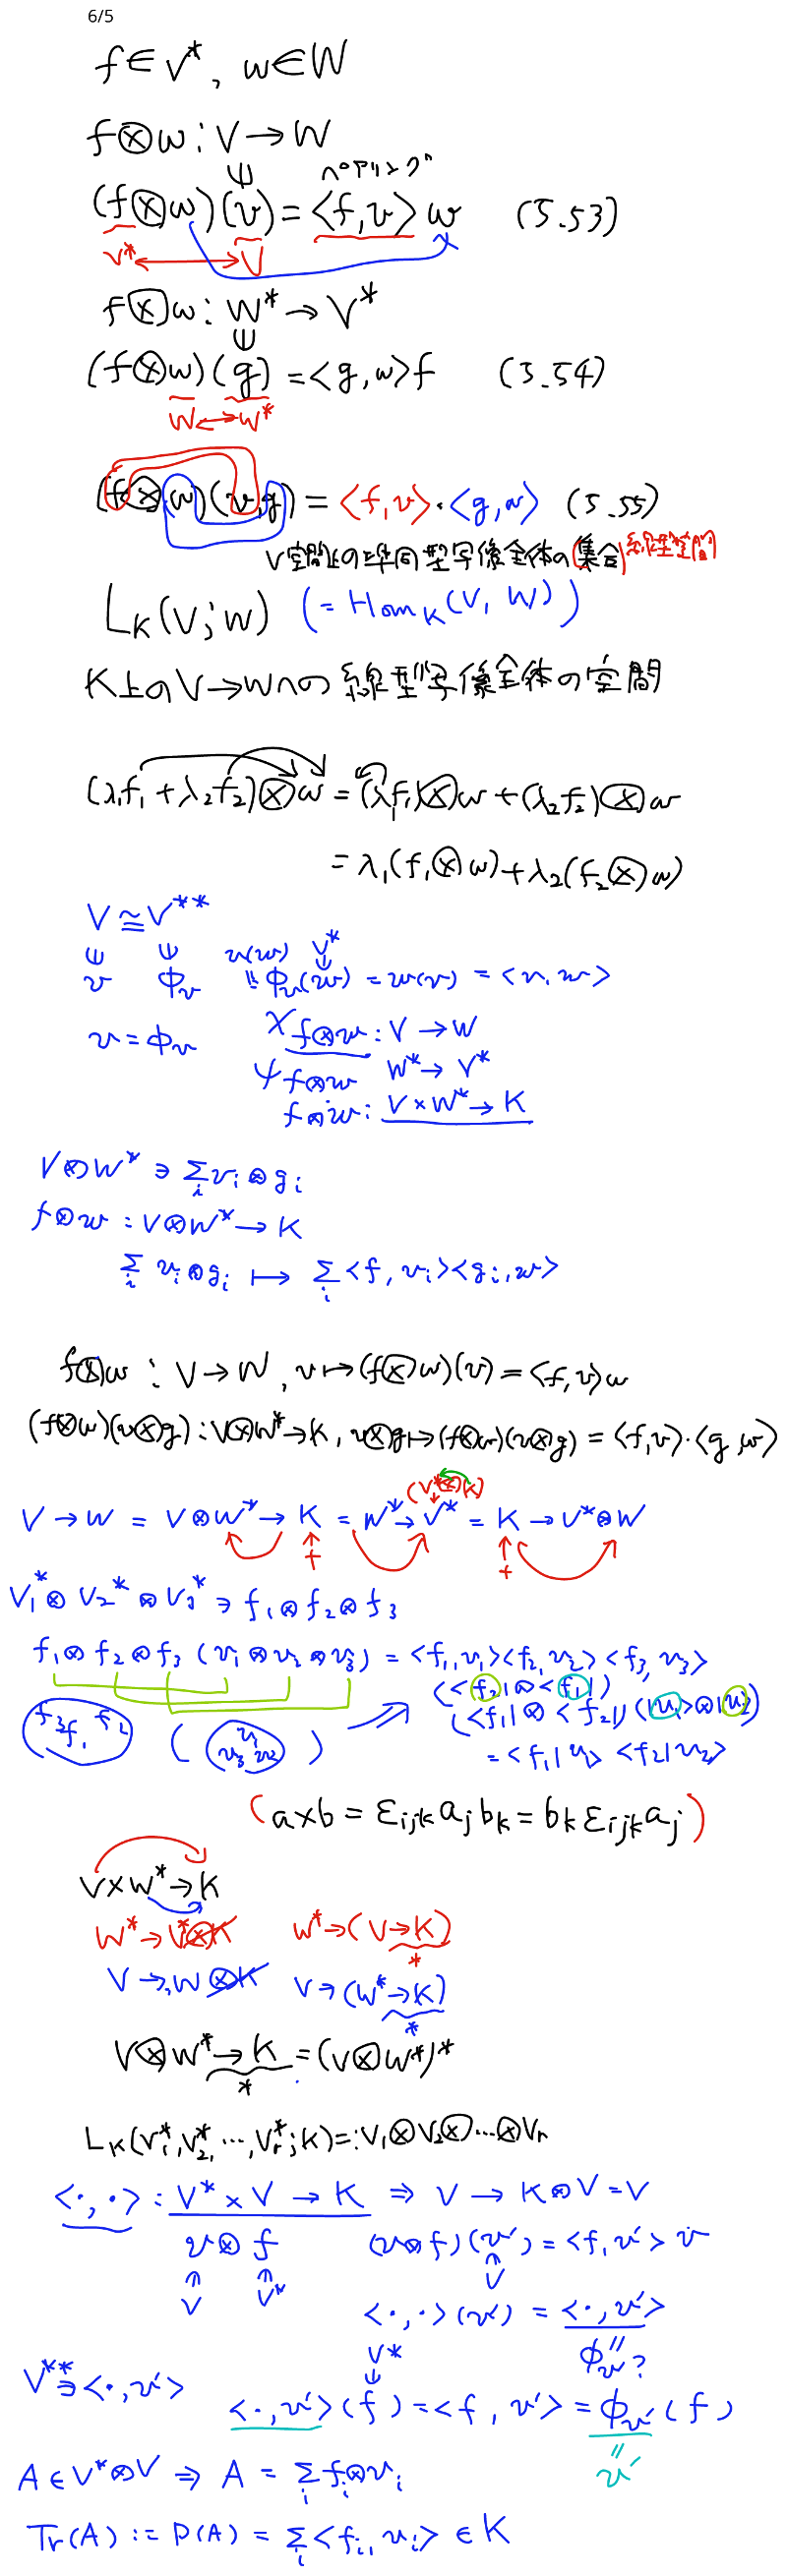 6/5
f∈V*, w∈W
f⊗w : V→W
ペアリング
(f⊗w)(v) = <f,v>w (5.53)
V* ↔ V
f⊗w : W*→V*
(f⊗w)(g) = <g,w>f (5.54)
W ↔ W*
(f⊗w)(v,g) = <f,v>・<g,w> (5.55)
線型空間
L_K(V;W) (= Hom_K(V, W))
K上のV→Wへの線型写像全体の空間
(λ₁f₁+λ₂f₂)⊗w = (λ₁f₁)⊗w+(λ₂f₂)⊗w
= λ₁(f₁⊗w)+λ₂(f₂⊗w)
V≅V**
v(w) V*
v φ_v φ_v(w) = w(v) = <v,w>
v=φ_v χ_{f⊗w} : V→W
ψ_{f⊗w} W*→V*
f⊗w : V×W*→K
V⊗W* ∋ Σ_i v_i⊗g_i
f⊗w : V⊗W*→K
Σ_i v_i⊗g_i ↦ Σ_i <f,v_i><g_i,w>
f⊗w : V→W, v↦(f⊗w)(v)=<f,v>w
(f⊗w)(v⊗g) : V⊗W*→K, v⊗g↦(f⊗w)(v⊗g) = <f,v>・<g,w>
(V*⊗K)
V→W = V⊗W*→K = W*→V* = K→V*⊗W
V₁*⊗V₂*⊗V₃* ∋ f₁⊗f₂⊗f₃
f₁⊗f₂⊗f₃(v₁⊗v₂⊗v₃) = <f₁,v₁><f₂,v₂><f₃,v₃>
(<f₂|⊗<f₁|)
f₃ f₁ f₂ (v₁ v₃ v₂) ⇒ (<f₁|⊗<f₂|)(|v₁>⊗|v₂>)
= <f₁|v₁><f₂|v₂>
(a×b = ε_{ijk}a_jb_k = b_kε_{ijk}a_j)
V×W*→K
W*→V*⊗K W*→(V→K)
*
V→W⊗K V→(W*→K)
*
V⊗W*→K=(V⊗W*)*
*
L_K(V₁*,V₂*,…,V_r*;K)=:V₁⊗V₂⊗…⊗V_r
<・,・> : V*×V→K ⇒ V→K⊗V=V
v⊗f (v⊗f)(v′)=<f,v′>v
V V* V
<・,・>(v′) = <・,v′>
V* φ_v′?
V**∋<・,v′> <・,v′>(f)=<f,v′>=φ_v′(f)
v′
A∈V*⊗V ⇒ A=Σ_i f_i⊗v_i
Tr(A) := P(A) = Σ_i <f_i,v_i> ∈K